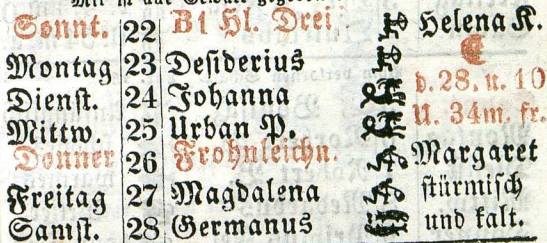 Sonnt. 22 B1 Hl. Drei Helena K.
Montag 23 Desiderius
Dienst. 24 Johanna d. 28. u. 10
Mittw. 25 Urban P. U. 34m. fr.
Donner 26 Frohnleichn. Margaret
Freitag 27 Magdalena stürmisch
Samst. 28 Germanus und kalt.